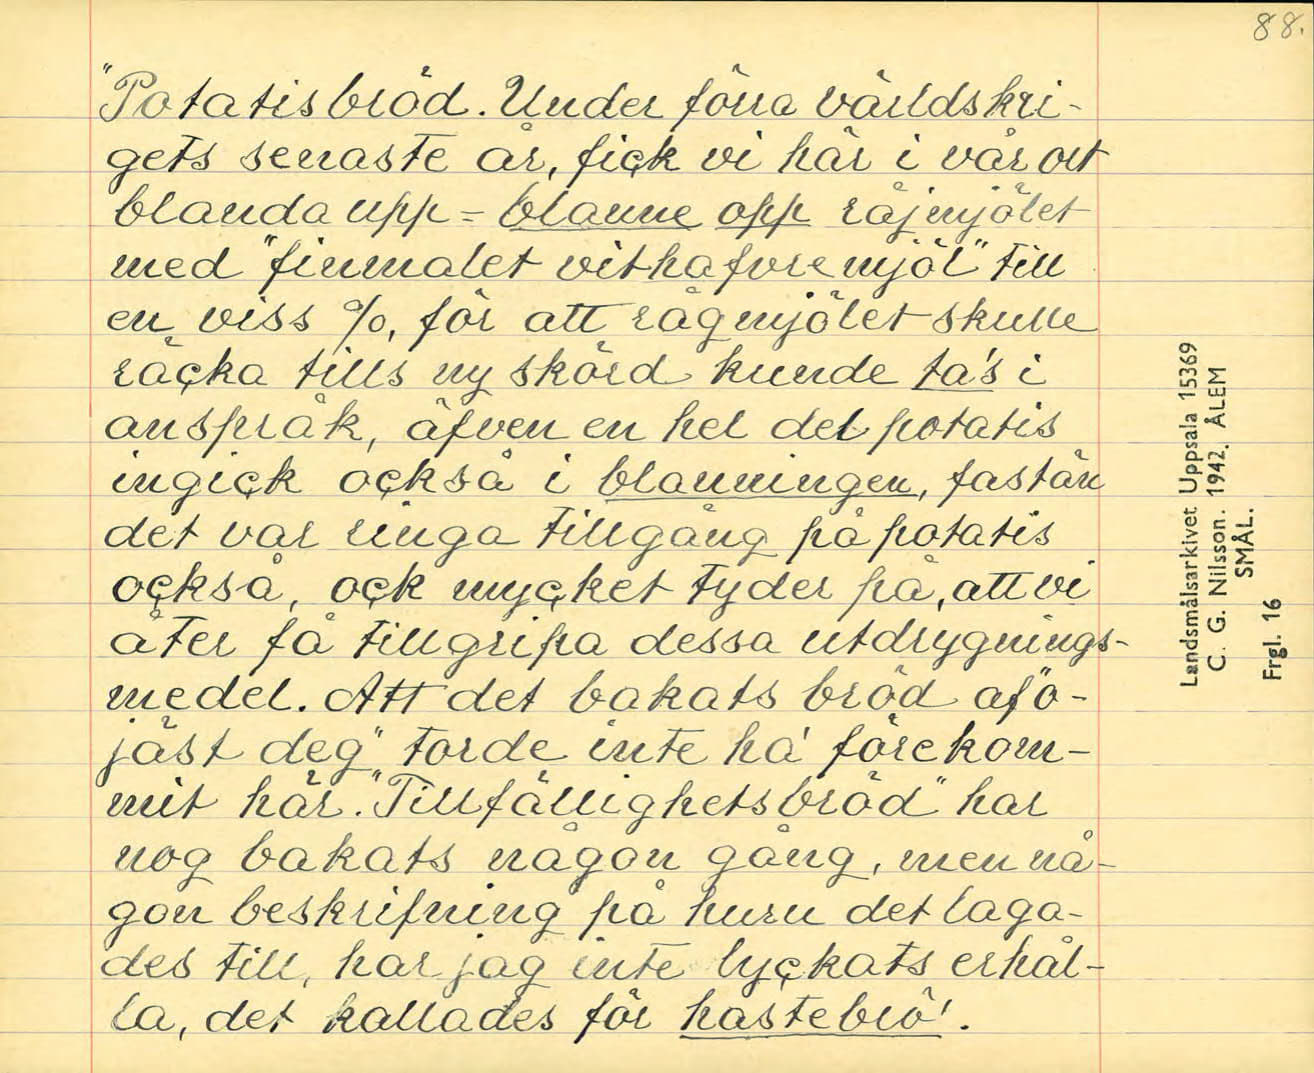 88.
"Potatisbröd. Under förra världskri-
gets senaste år, fick vi här i vår ort
blanda upp = blanne opp råjmjölet
med "finmalet vithafvremjöl" till
en viss %, för att rågmjölet skulle
räcka tills ny skörd kunde ta's i
anspråk, äfven en hel del potatis
ingick också i blanningen, fastän
det var ringa tillgång på potatis
också, ock mycket tyder på, att vi
åter få tillgripa dessa utdrygnings-
medel. Att det bakats bröd af "o-
jäst deg" torde inte ha' förekom-
mit här. "Tillfällighetsbröd" har
nog bakats någon gång, men nå-
gon beskrifning på huru det laga-
des till, har jag inte lyckats erhål-
la, det kallades för hastebrö'.
Landsmålsarkivet Uppsala 15369
C. G. Nilsson. 1942. ÅLEM
SMÅL.
Frgl. 16